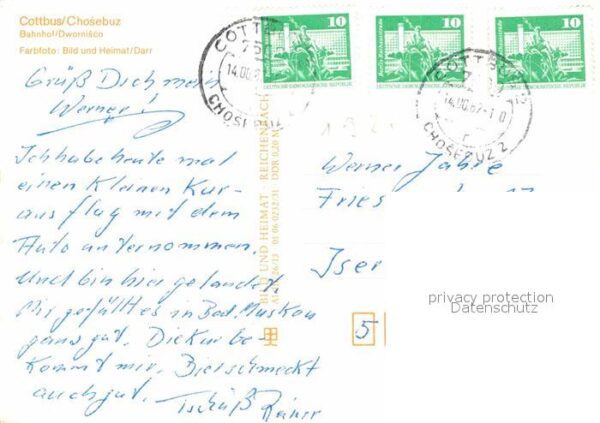 Cottbus/Chośebuz
Bahnhof/Dwornišćo
Farbfoto: Bild und Heimat/Darr
Grüß Dich mein
Werner!
Ich habe heute mal
einen kleinen Kur-
ausflug mit dem
Auto unternommen.
Und bin hier gelandet.
Mir gefällt es in Bad Muskau
ganz gut. Die Kur be-
kommt mir. Bier schmeckt
auch gut. Tschüß
Rainer
BILD UND HEIMAT · REICHENBACH
26/13 01 06 0232/31 DDR 0,20 M
10
DEUTSCHE DEMOKRATISCHE REPUBLIK
10
DEUTSCHE DEMOKRATISCHE REPUBLIK
10
DEUTSCHE DEMOKRATISCHE REPUBLIK
COTTBUS
75
14.00.8
CHOŚEBUZ
COTTBUS 2
14.00.82-10
r
CHOŚEBUZ 2
Werner Jahre
Fries
Iser
5
privacy protection
Datenschutz